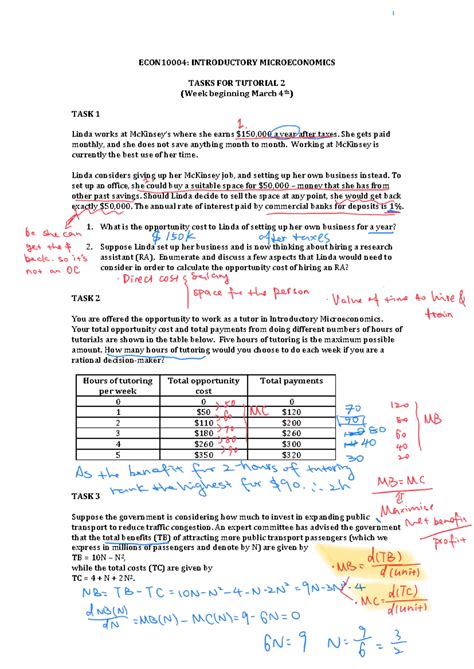 1
ECON10004: INTRODUCTORY MICROECONOMICS
TASKS FOR TUTORIAL 2
(Week beginning March 4th)
TASK 1
1.
Linda works at McKinsey's where she earns $150,000 a year after taxes. She gets paid
monthly, and she does not save anything month to month. Working at McKinsey is
currently the best use of her time.
Linda considers giving up her McKinsey job, and setting up her own business instead. To
set up an office, she could buy a suitable space for $50,000 – money that she has from
other past savings. Should Linda decide to sell the space at any point, she would get back
exactly $50,000. The annual rate of interest paid by commercial banks for deposits is 1%.
1. What is the opportunity cost to Linda of setting up her own business for a year?
be she can
get the $
back. so it's
not an OC
$150k after taxes
2. Suppose Linda set up her business and is now thinking about hiring a research
assistant (RA). Enumerate and discuss a few aspects that Linda would need to
consider in order to calculate the opportunity cost of hiring an RA?
· Direct cost { salary
space for the person
· Value of time to hire &
train
TASK 2
You are offered the opportunity to work as a tutor in Introductory Microeconomics.
Your total opportunity cost and total payments from doing different numbers of hours of
tutorials are shown in the table below. Five hours of tutoring is the maximum possible
amount. How many hours of tutoring would you choose to do each week if you are a
rational decision-maker?
Hours of tutoring per week Total opportunity cost Total payments
0 0 0
1 $50 $120
2 $110 $200
3 $180 $260
4 $260 $300
5 $350 $320
> 50
> 60
> 70
> 80
> 90
MC
70
90
80
40
30
120
80
60
40
20
MB
As the benefit for 2 hours of tutoring
rank the highest for $90. ∴ 2h
MB = MC
⇕
Maximise
net benefit
profit
TASK 3
Suppose the government is considering how much to invest in expanding public
transport to reduce traffic congestion. An expert committee has advised the government
that the total benefits (TB) of attracting more public transport passengers (which we
express in millions of passengers and denote by N) are given by
TB = 10N – N²,
while the total costs (TC) are given by
TC = 4 + N + 2N².
· MB = d(TB) / d(unit)
· MC = d(TC) / d(unit)
NB = TB - TC = 10N - N² - 4 - N - 2N² = 9N - 3N² - 4
dNB(N) / dN = MB(N) - MC(N) = 9 - 6N = 0
6N = 9 N = 9/6 = 3/2